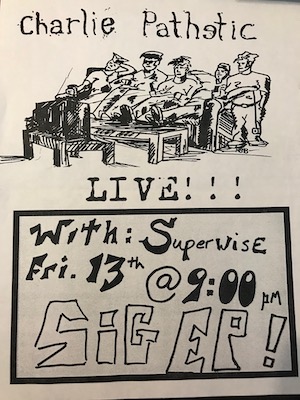 Charlie Pathetic
LIVE!!!
With: Superwise
Fri. 13th @ 9:00 PM
SIG EP!